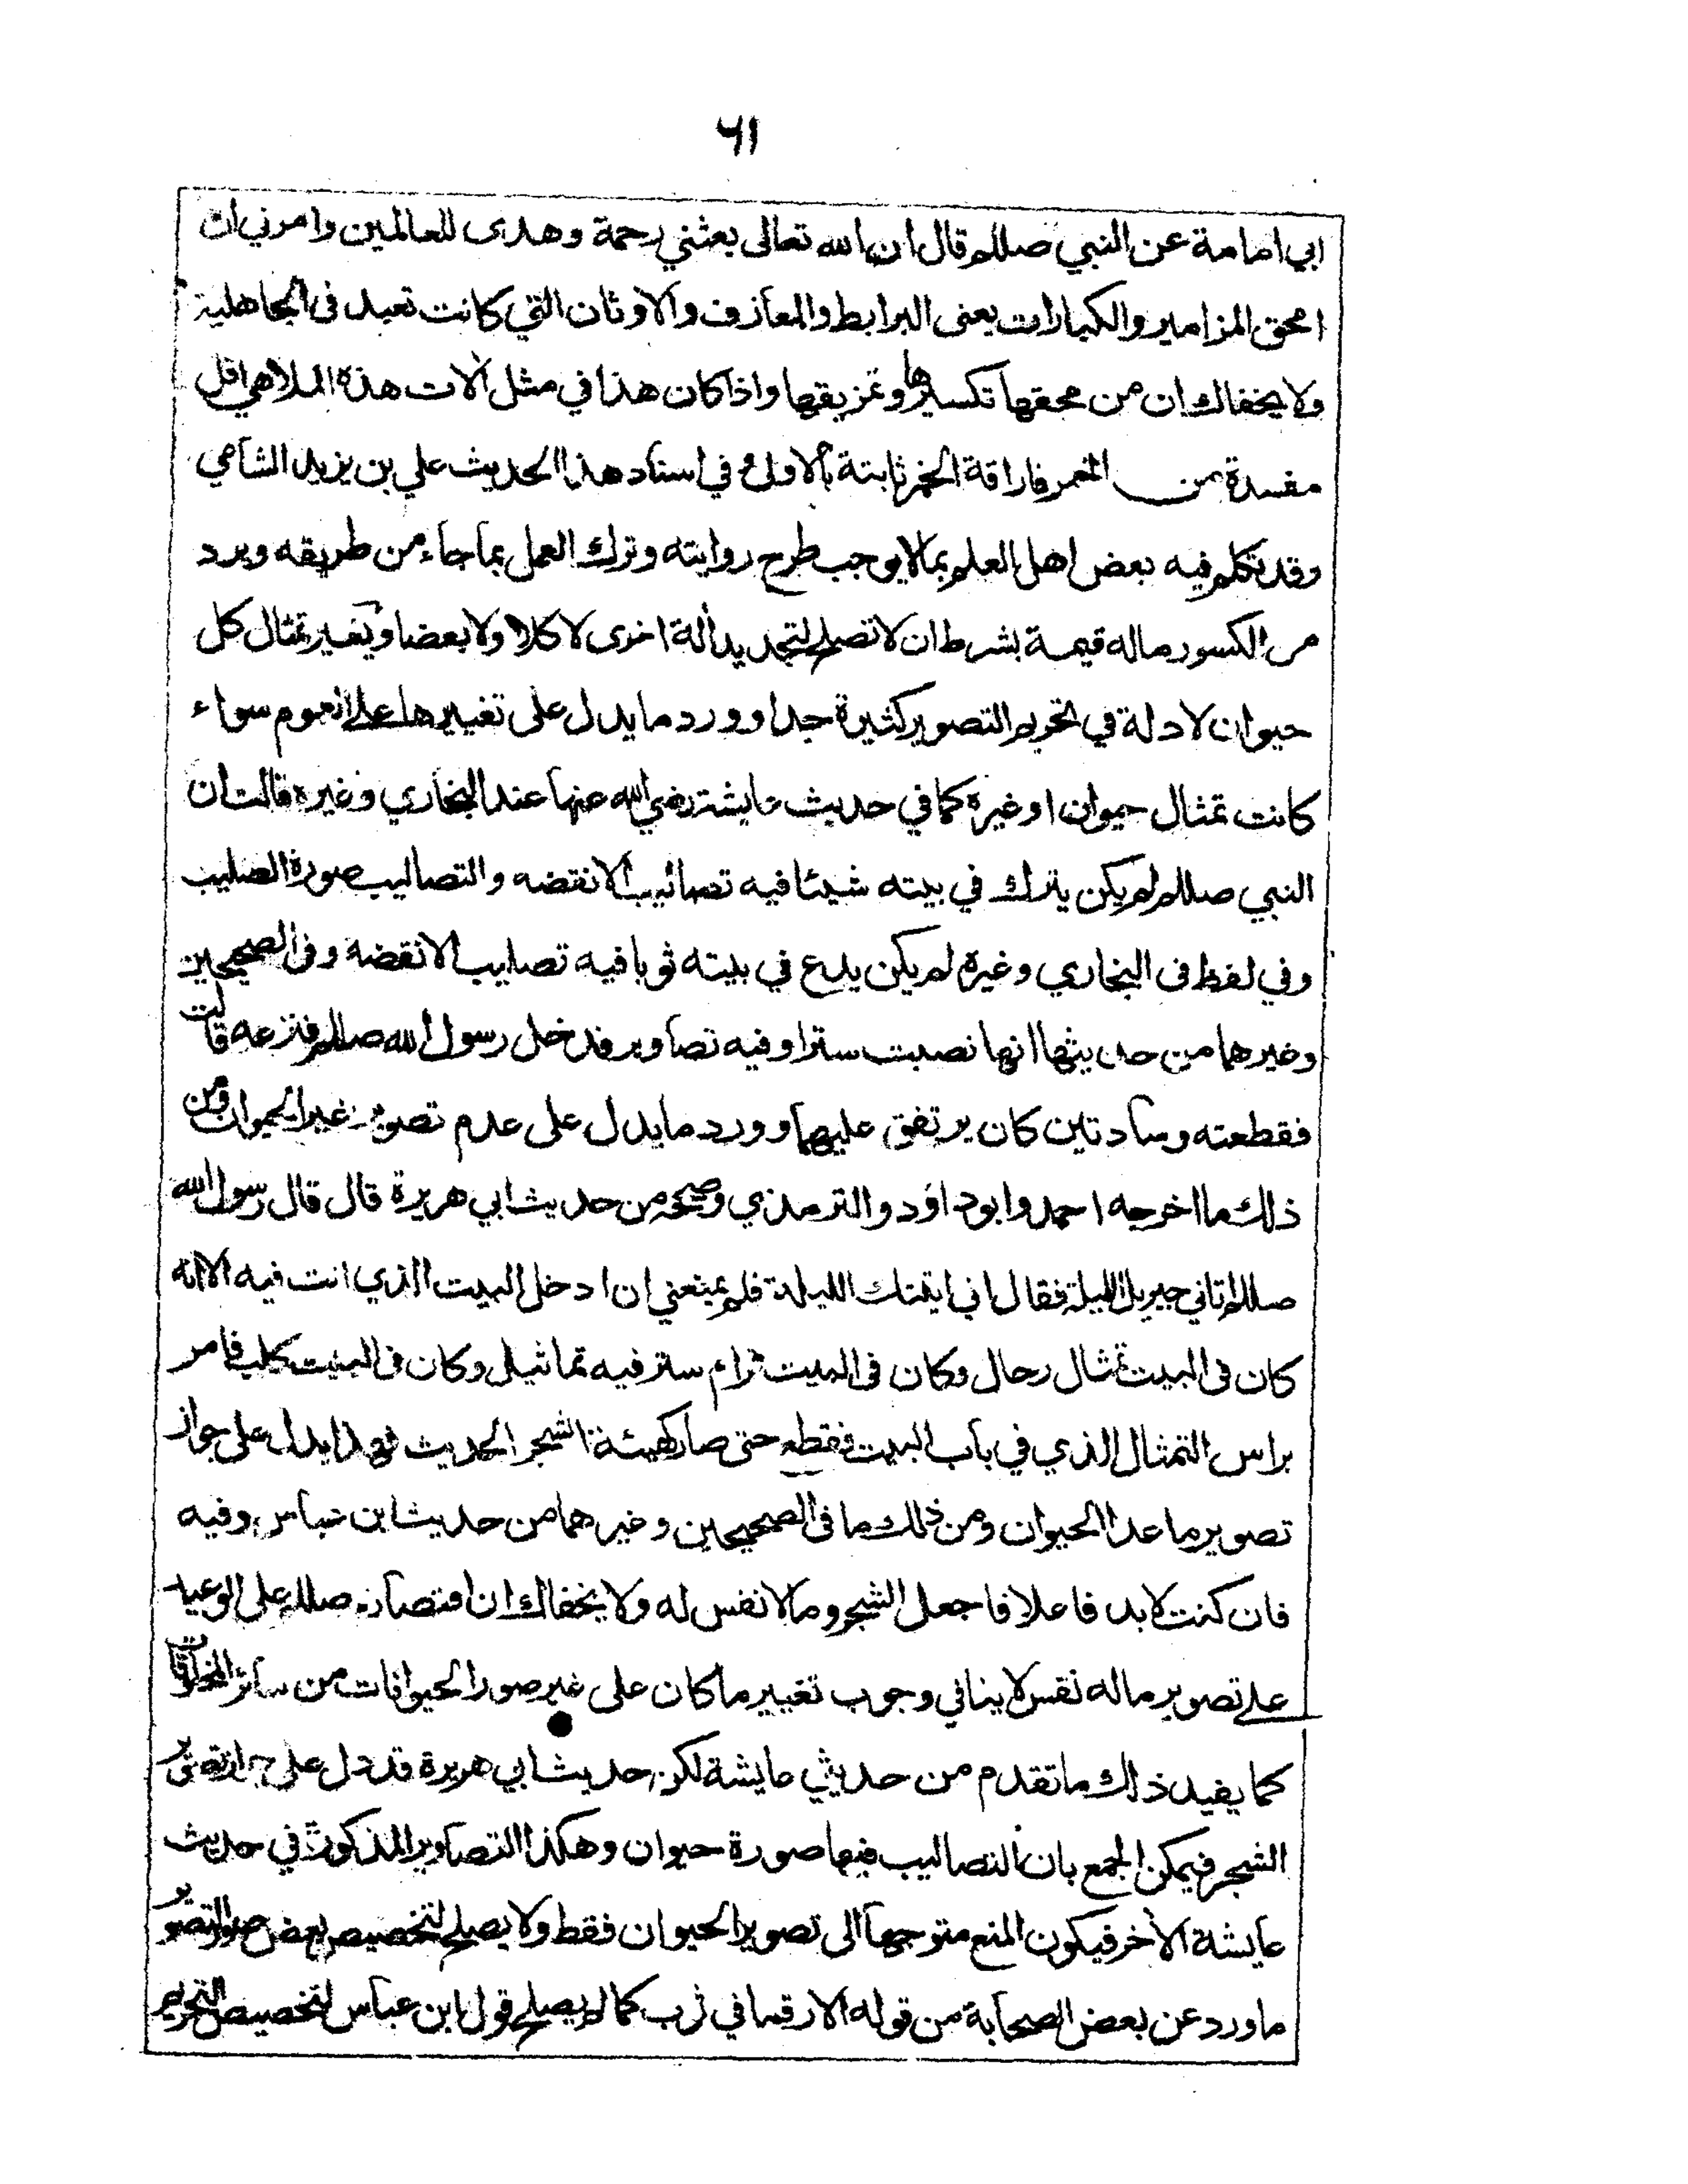 ٦١
ابي امامة عن النبي صللم قال ان الله تعالى بعثني رحمة وهدى للعالمين وامرني ان
امحق المزامير والكبارات يعنى البرابط والمعازف والاوثان التي كانت تعبد فى الجاهلية
ولا يخفاك ان من محقها تكسيرها وتمزيقها واذا كان هذا في مثل الات هذه الملاهي اقل
مفسدة من الخمر فاراقة الخمر ثابتة بالاولى وفي اسناد هذا الحديث علي بن يزيد الشامي
وقد تكلم فيه بعض اهل العلم بما لا يوجب طرح روايته وترك العمل بما جاء من طريقه ويرد
من الكسور ماله قيمة بشرط ان لا تصلح لتجديد ألة اخرى لا كلا ولا بعضا ويغير تمثال كل
حيوان لادلة في تحريم التصوير كثيرة جدا وورد ما يدل على تغييرها على العموم سواء
كانت تمثال حيوان او غيره كما في حديث عايشة رضي الله عنها عند البخاري وغيره قالت ان
النبي صللم لم يكن يترك في بيته شيئا فيه تصاليب الا نقضه والتصاليب صورة الصليب
وفي لفظ فى البخاري وغيره لم يكن يدع في بيته ثوبا فيه تصليب الا نقضه وفى الصحيحين
وغيرهما من حديثها انها نصبت سترا وفيه تصاوير فدخل رسول الله صللم فنزعه قالت
فقطعته وسادتين كان يرتفق عليهما وورد ما يدل على عدم تصوير غير الحيوان ومن
ذلك ما اخرجه احمد وابو داود والترمذي وصححه من حديث ابي هريرة قال قال رسول الله
صللم اتاني جبريل الليلة فقال اني اتيتك الليلة فلم يمنعني ان ادخل البيت الذي انت فيه الا انه
كان فى البيت تمثال رجال وكان فى البيت قرام ستر فيه تماثيل وكان فى البيت كلب فامر
براس التمثال الذي في باب البيت فقطع حتى صار كهيئة الشجر الحديث فهذا يدل على جواز
تصوير ما عدا الحيوان ومن ذلك ما فى الصحيحين وغيرهما من حديث ابن عباس وفيه
فان كنت لا بد فاعلا فاجعل الشجر وما لا نفس له ولا يخفاك ان اقتصاره صللم على الوعيد
على تصوير ماله نفس لا ينافي وجوب تغيير ما كان على غير صور الحيوانات من سائر المخلوقات
كما يفيد ذلك ما تقدم من حديثي عايشة لكن حديث ابي هريرة قد دل على جواز تصوير
الشجر فيمكن الجمع بان التصاليب فيها صورة حيوان وهكذا التصاوير المذكورة في حديث
عايشة الأخر فيكون المنع متوجها الى تصوير الحيوان فقط ولا يصلح لتخصيص بعض صور التصوير
ما ورد عن بعض الصحابة من قوله الا رقما في ثوب كما لم يصلح قول ابن عباس لتخصيص التحريم